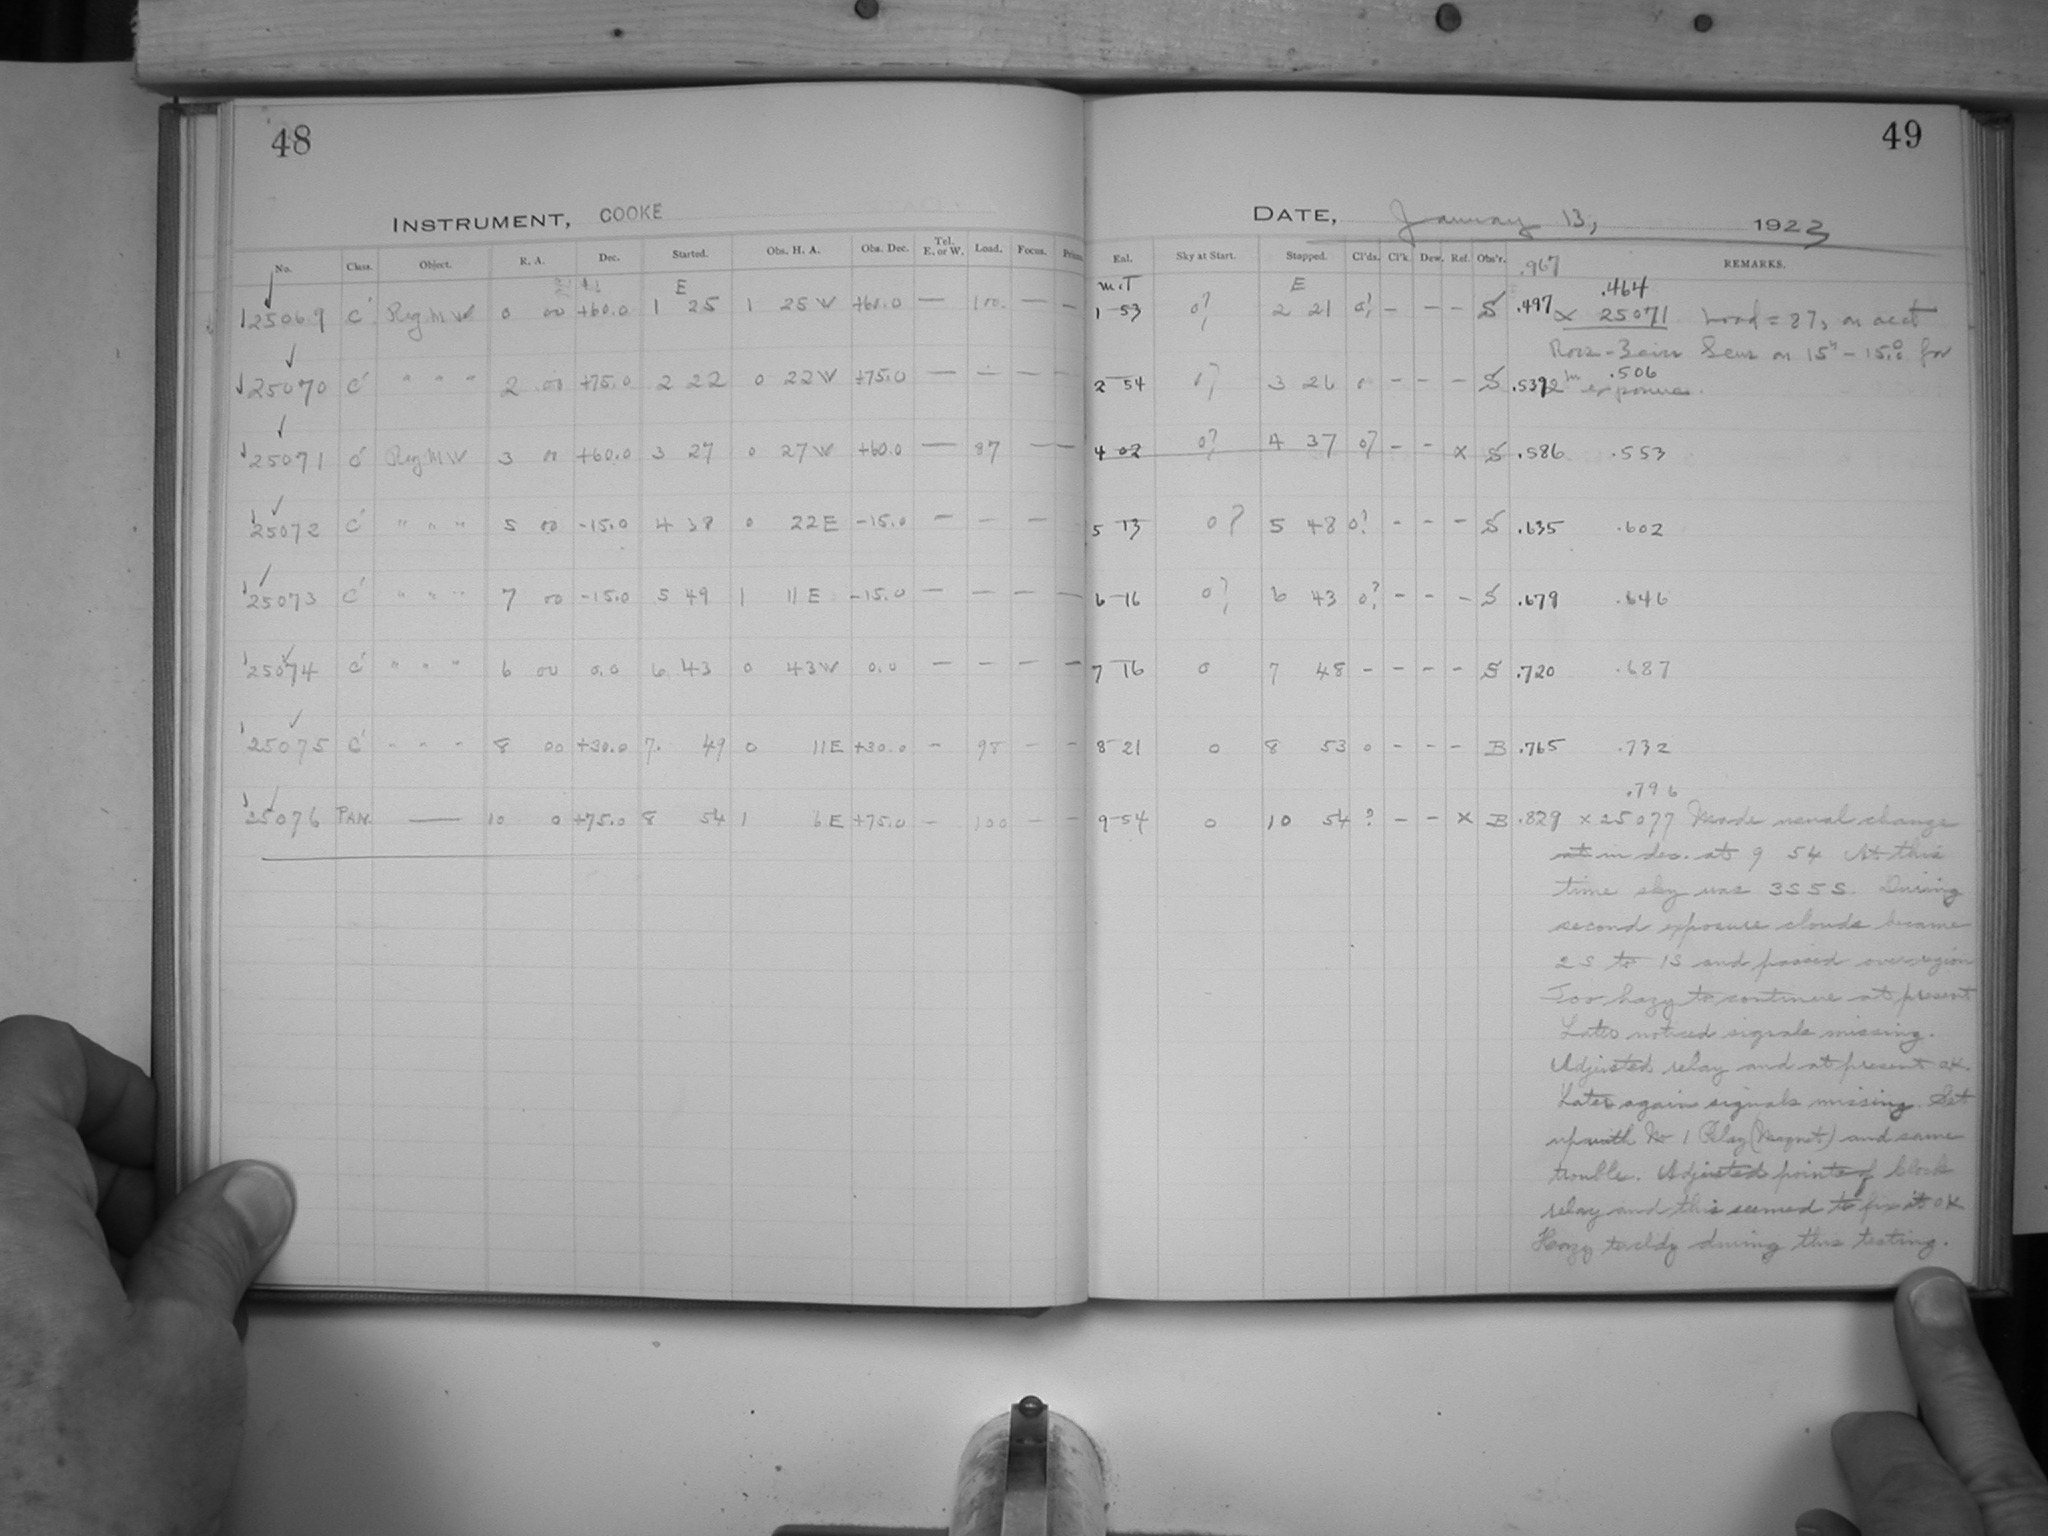 48
INSTRUMENT, COOKE
No. Class. Object. R. A. Dec. Started. Obs. H. A. Obs. Dec. Tel. E. or W. Load. Focus.
E
25069 C' Reg. M W 0 00 +60.0 1 25 1 25 W +60.0 — 100 — —
25070 C' " " " 2 00 +75.0 2 22 0 22 W +75.0 — — — —
25071 C' Reg. M W 3 00 +60.0 3 27 0 27 W +60.0 — 87 — —
25072 C' " " " 5 00 -15.0 4 38 0 22 E -15.0 — — — —
25073 C' " " " 7 00 -15.0 5 49 1 11 E -15.0 — — — —
25074 C' " " " 6 00 0.0 6 43 0 43 W 0.0 — — — —
25075 C' " " " 8 00 +30.0 7 49 0 11 E +30.0 - 98 - -
25076 PAN. — 10 0 +75.0 8 54 1 6 E +75.0 - 100 - -
49
DATE, January 13, 1923
Enl. Sky at Start. Stopped. Cl'ds. Cl'k. Dew. Ref. Obs'r. REMARKS.
.967
m.T E .464
1 53 0? 2 21 0? - - - S .497 x 25071 Load = 87, on acct
Ross-3 in Lens on 15h - 15.0° for
2 54 0? 3 26 0 - - - S .539 .506
2m exposures.
4 02 0? 4 37 0? - - x S .586 .553
5 13 0? 5 48 0? - - - S .635 .602
6 16 0? 6 43 0? - - - S .679 .646
7 16 0 7 48 - - - - S .720 .687
8 21 0 8 53 0 - - - B .765 .732
.796
9 54 0 10 54 ? - - x B .829 x 25077 Made usual change
at in dec. at 9 54 At this
time sky was 3S5S. During
second exposure clouds became
2S to 1S and passed over region
Too hazy to continue at present
Later noticed signals missing.
Adjusted relay and at present OK.
Later again signals missing. Set
up with No 1 Relay (Magnet) and same
trouble. Adjusted points of clock
relay and this seemed to fix it OK
Hazy to cldy during this testing.